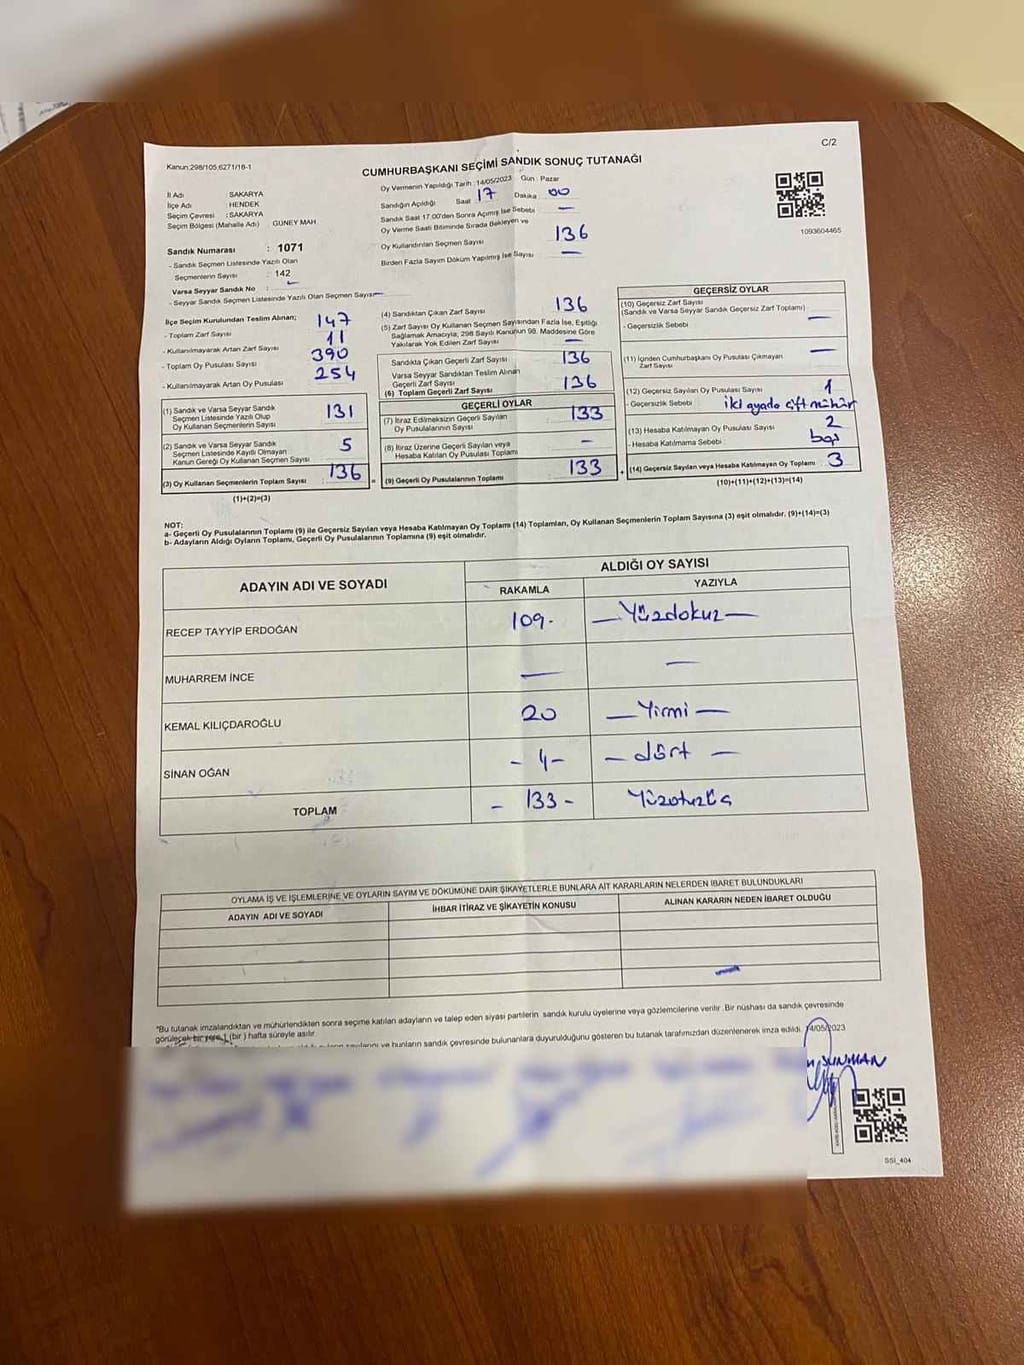 C/2
Kanun:298/105.6271/16-1
CUMHURBAŞKANI SEÇİMİ SANDIK SONUÇ TUTANAĞI
İl Adı : SAKARYA
İlçe Adı : HENDEK
Seçim Çevresi : SAKARYA
Seçim Bölgesi (Mahalle Adı) : GÜNEY MAH.
Sandık Numarası : 1071
- Sandık Seçmen Listesinde Yazılı Olan
Seçmenlerin Sayısı : 142
Varsa Seyyar Sandık No : -
- Seyyar Sandık Seçmen Listesinde Yazılı Olan Seçmen Sayısı -
Oy Vermenin Yapıldığı Tarih : 14/05/2023 Gün : Pazar
Sandığın Açıldığı Saat 17 Dakika 00
Sandık Saat 17:00'den Sonra Açımış İse Sebebi —
Oy Verme Saati Bitiminde Sırada Bekleyen ve
Oy Kullandırılan Seçmen Sayısı 136
Birden Fazla Sayım Döküm Yapılmış İse Sayısı —
1093604465
İlçe Seçim Kurulundan Teslim Alınan;
- Toplam Zarf Sayısı 147
- Kullanılmayarak Artan Zarf Sayısı 11
- Toplam Oy Pusulası Sayısı 390
- Kullanılmayarak Artan Oy Pusulası 254
(1) Sandık ve Varsa Seyyar Sandık
Seçmen Listesinde Yazılı Olup
Oy Kullanan Seçmenlerin Sayısı 131
(2) Sandık ve Varsa Seyyar Sandık
Seçmen Listesinde Kayıtlı Olmayan
Kanun Gereği Oy Kullanan Seçmen Sayısı 5
(3) Oy Kullanan Seçmenlerin Toplam Sayısı 136
(1)+(2)=(3)
(4) Sandıktan Çıkan Zarf Sayısı 136
(5) Zarf Sayısı Oy Kullanan Seçmen Sayısından Fazla İse, Eşitliği
Sağlamak Amacıyla, 298 Sayılı Kanunun 98. Maddesine Göre
Yakılarak Yok Edilen Zarf Sayısı —
Sandıkta Çıkan Geçerli Zarf Sayısı 136
Varsa Seyyar Sandıktan Teslim Alınan
Geçerli Zarf Sayısı
(6) Toplam Geçerli Zarf Sayısı 136
GEÇERLİ OYLAR
(7) İtiraz Edilmeksizin Geçerli Sayılan
Oy Pusulalarının Sayısı 133
(8) İtiraz Üzerine Geçerli Sayılan veya
Hesaba Katılan Oy Pusulası Toplamı —
(9) Geçerli Oy Pusulalarının Toplamı 133
GEÇERSİZ OYLAR
(10) Geçersiz Zarf Sayısı
(Sandık ve Varsa Seyyar Sandık Geçersiz Zarf Toplamı) —
- Geçersizlik Sebebi
(11) İçinden Cumhurbaşkanı Oy Pusulası Çıkmayan
Zarf Sayısı —
(12) Geçersiz Sayılan Oy Pusulası Sayısı 1
- Geçersizlik Sebebi : iki ayada çift mühür
(13) Hesaba Katılmayan Oy Pusulası Sayısı 2
- Hesaba Katılmama Sebebi : boş
(14) Geçersiz Sayılan veya Hesaba Katılmayan Oy Toplamı 3
(10)+(11)+(12)+(13)=(14)
NOT:
a- Geçerli Oy Pusulalarının Toplamı (9) ile Geçersiz Sayılan veya Hesaba Katılmayan Oy Toplamı (14) Toplamları, Oy Kullanan Seçmenlerin Toplam Sayısına (3) eşit olmalıdır. (9)+(14)=(3)
b- Adayların Aldığı Oyların Toplamı, Geçerli Oy Pusulalarının Toplamına (9) eşit olmalıdır.
ADAYIN ADI VE SOYADI ALDIĞI OY SAYISI
RAKAMLA YAZIYLA
RECEP TAYYİP ERDOĞAN 109- — Yüzdokuz —
MUHARREM İNCE — —
KEMAL KILIÇDAROĞLU 20 — Yirmi —
SİNAN OĞAN - 4 - — dört —
TOPLAM - 133 - Yüzotuzüç
OYLAMA İŞ VE İŞLEMLERİNE VE OYLARIN SAYIM VE DÖKÜMÜNE DAİR ŞİKAYETLERLE BUNLARA AİT KARARLARIN NELERDEN İBARET BULUNDUKLARI
ADAYIN ADI VE SOYADI İHBAR İTİRAZ VE ŞİKAYETİN KONUSU ALINAN KARARIN NEDEN İBARET OLDUĞU
—
*Bu tutanak imzalandıktan ve mühürlendikten sonra seçime katılan adayların ve talep eden siyasi partilerin sandık kurulu üyelerine veya gözlemcilerine verilir. Bir nüshası da sandık çevresinde
görülecek bir yere 1 (bir) hafta süreyle asılır.
ve bunların sandık çevresinde bulunanlara duyurulduğunu gösteren bu tutanak tarafımızdan düzenlenerek imza edildi. 14/05/2023
SSI_404